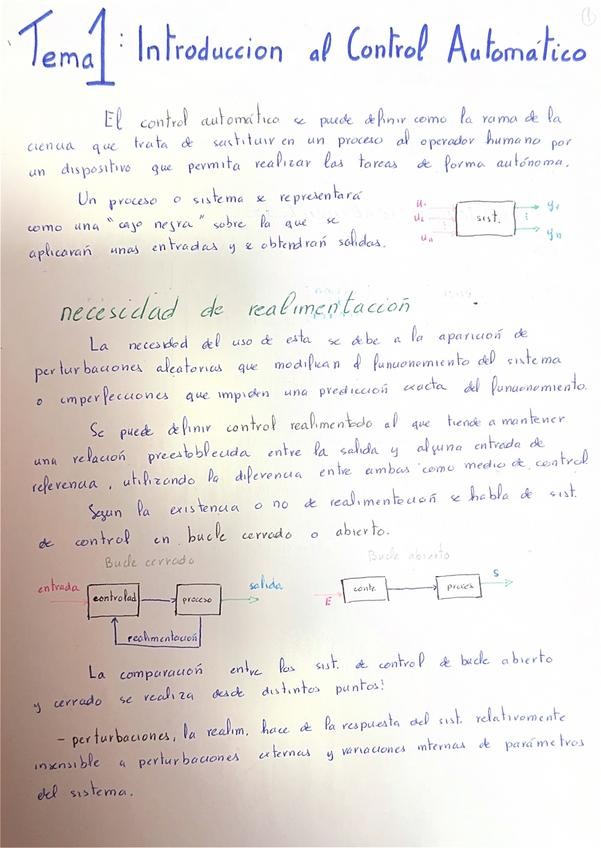 1
Tema 1: Introduccion al Control Automático
El control automático se puede definir como la rama de la
ciencia que trata de sustituir en un proceso al operador humano por
un dispositivo que permita realizar las tareas de forma autónoma.
Un proceso o sistema se representará
como una "caja negra" sobre la que se
aplicarań unas entradas y se obtendrań salidas.
u₁
u₂
uₙ
sist.
y₁
yₙ
necesidad de realimentación
La necesidad del uso de esta se debe a la aparición de
perturbaciones aleatorias que modifican el funcionamiento del sistema
o imperfecciones que impiden una predicción exacta del funcionamiento.
Se puede definir control realimentado al que tiende a mantener
una relación preestablecida entre la salida y alguna entrada de
referencia, utilizando la diferencia entre ambas como medio de control
Segun la existencia o no de realimentación se habla de sist.
de control en bucle cerrado o abierto.
Bucle cerrado
entrada
controlad
proceso
salida
realimentación
Bucle abierto
E
contr.
proces
S
La comparación entre los sist. de control de bucle abierto
y cerrado se realiza desde distintos puntos:
- perturbaciones, la realim. hace de la respuesta del sist. relativamente
insensible a perturbaciones externas y variaciones internas de parámetros
del sistema.